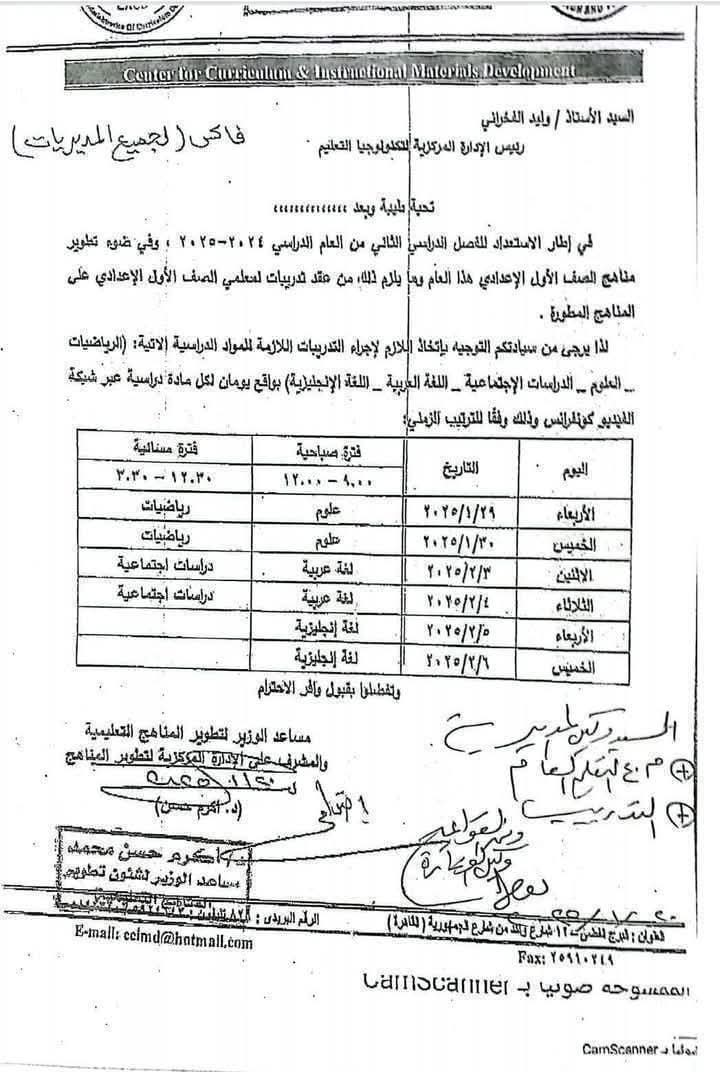 Center for Curriculum & Instructional Materials Development
السيد الأستاذ / وليد الفخراني
رئيس الإدارة المركزية لتكنولوجيا التعليم
فاكس (لجميع المديريات)
تحية طيبة وبعد ،،،،،،،،،،،،،،
في إطار الاستعداد للفصل الدراسي الثاني من العام الدراسي ٢٠٢٤-٢٠٢٥ ، وفي ضوء تطوير
مناهج الصف الأول الإعدادي هذا العام وما يلزم ذلك من عقد تدريبات لمعلمي الصف الأول الإعدادي على
المناهج المطورة .
لذا يرجى من سيادتكم التوجيه بإتخاذ اللازم لإجراء التدريبات اللازمة للمواد الدراسية الاتية: (الرياضيات
_ العلوم _ الدراسات الإجتماعية _ اللغة العربية _ اللغة الإنجليزية) بواقع يومان لكل مادة دراسية عبر شبكة
الفيديو كونفرانس وذلك وفقًا للترتيب الزمني:
اليوم التاريخ فترة صباحية فترة مسائية
٩.٠٠ – ١٢.٠٠ ١٢.٣٠ – ٣.٣٠
الأربعاء ٢٠٢٥/١/٢٩ علوم رياضيات
الخميس ٢٠٢٥/١/٣٠ علوم رياضيات
الاثنين ٢٠٢٥/٢/٣ لغة عربية دراسات اجتماعية
الثلاثاء ٢٠٢٥/٢/٤ لغة عربية دراسات اجتماعية
الأربعاء ٢٠٢٥/٢/٥ لغة إنجليزية
الخميس ٢٠٢٥/٢/٦ لغة إنجليزية
وتفضلوا بقبول وافر الاحترام
مساعد الوزير لتطوير المناهج التعليمية
والمشرف على الإدارة المركزية لتطوير المناهج
(د. أكرم حسن)
السيد وكيل المديرية
م.ع التعليم العام
التدريب
أكرم حسن محمد
مساعد الوزير لشئون تطوير
المناهج التعليمية
شارع الجمهورية ( القاهرة )
الرقم البريدى :
E-mail: ccimd@hotmail.com
Fax: ٢٥٩١٠٢٤٩
الممسوحه ضوئيا بـ CamScanner
CamScanner